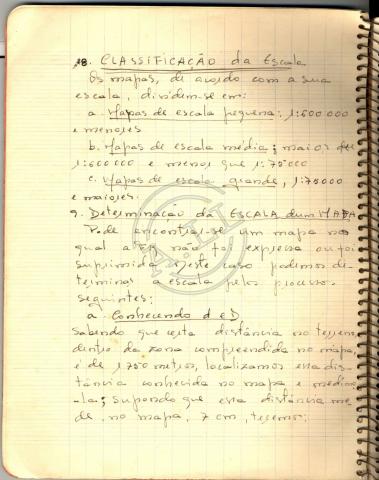 8. CLASSIFICAÇÃO da Escala
Os mapas, de acordo com a sua
escala, dividem-se em:
a. Mapas de escala pequena: 1:600 000
e menores
b. Mapas de escala média; maior que
1:600 000 e menor que 1:75000
c. Mapas de escala grande, 1:75000
e maiores.
9. Determinação da ESCALA dum MAPA
Pode encontrar-se um mapa no
qual a não foi expressa ou foi
suprimida. Neste caso podemos de-
terminar a escala pelos processos
seguintes:
a. Conhecendo d e D
Sabendo que certa distância no terreno,
dentro da zona compreendida no mapa,
é de 1750 metros, localizamos essa dis-
tância conhecida no mapa e medimo-
-la; supondo que essa distância me-
de, no mapa, 7 cm, teremos: